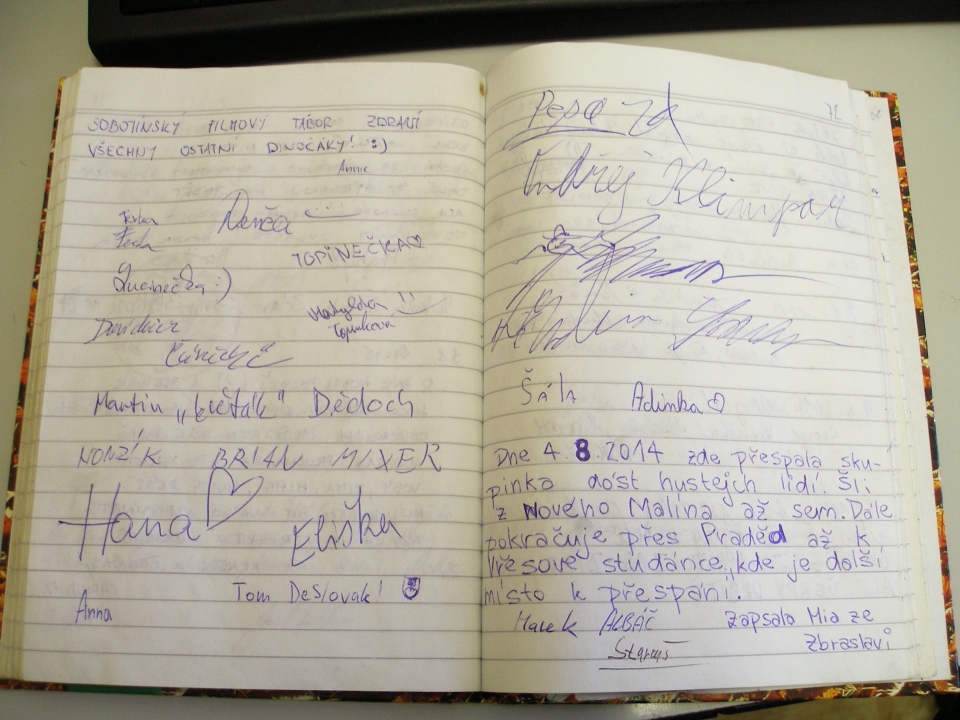 SOBOTÍNSKÝ FILMOVÝ TÁBOR ZDRAVÍ
VŠECHNY OSTATNÍ DINOČÁKY! :)
Annie
Denča
TOPINEČKA
Lucinečka :)
Matylda
Martin „květák“ Dědoch
HONZÍK BRIAN MIXER
Hana
Eliška
Tom DeSlovak!
Anna
Pepa
Ondřej Klimpar
Šála Adinka
Dne 4.8.2014 zde přespala sku-
pinka dost hustejch lidí. Šli
z Nového Malína až sem. Dále
pokračuje přes Praděd až k
Vřesové studánce, kde je další
místo k přespání.
Marek ALBÁČ zapsala Mia ze
Zbraslavi